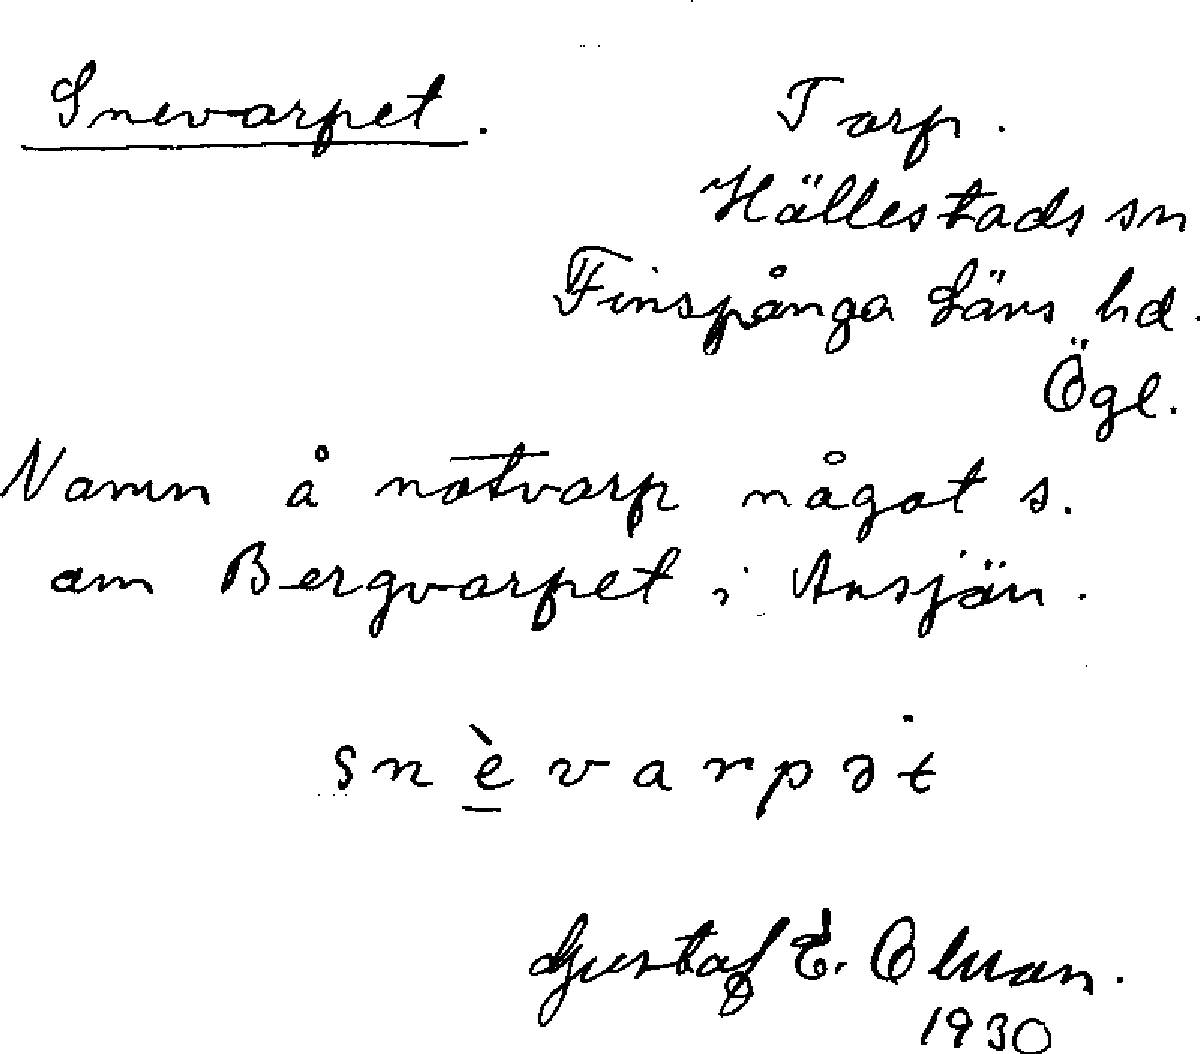 Snevarpet.
Torp.
Hällestads sn
Finspånga Läns hd.
Ögl.
Namn å notvarp något s.
om Bergvarpet i Ansjön.
snèvarpət
Gustaf E. Olman.
1930